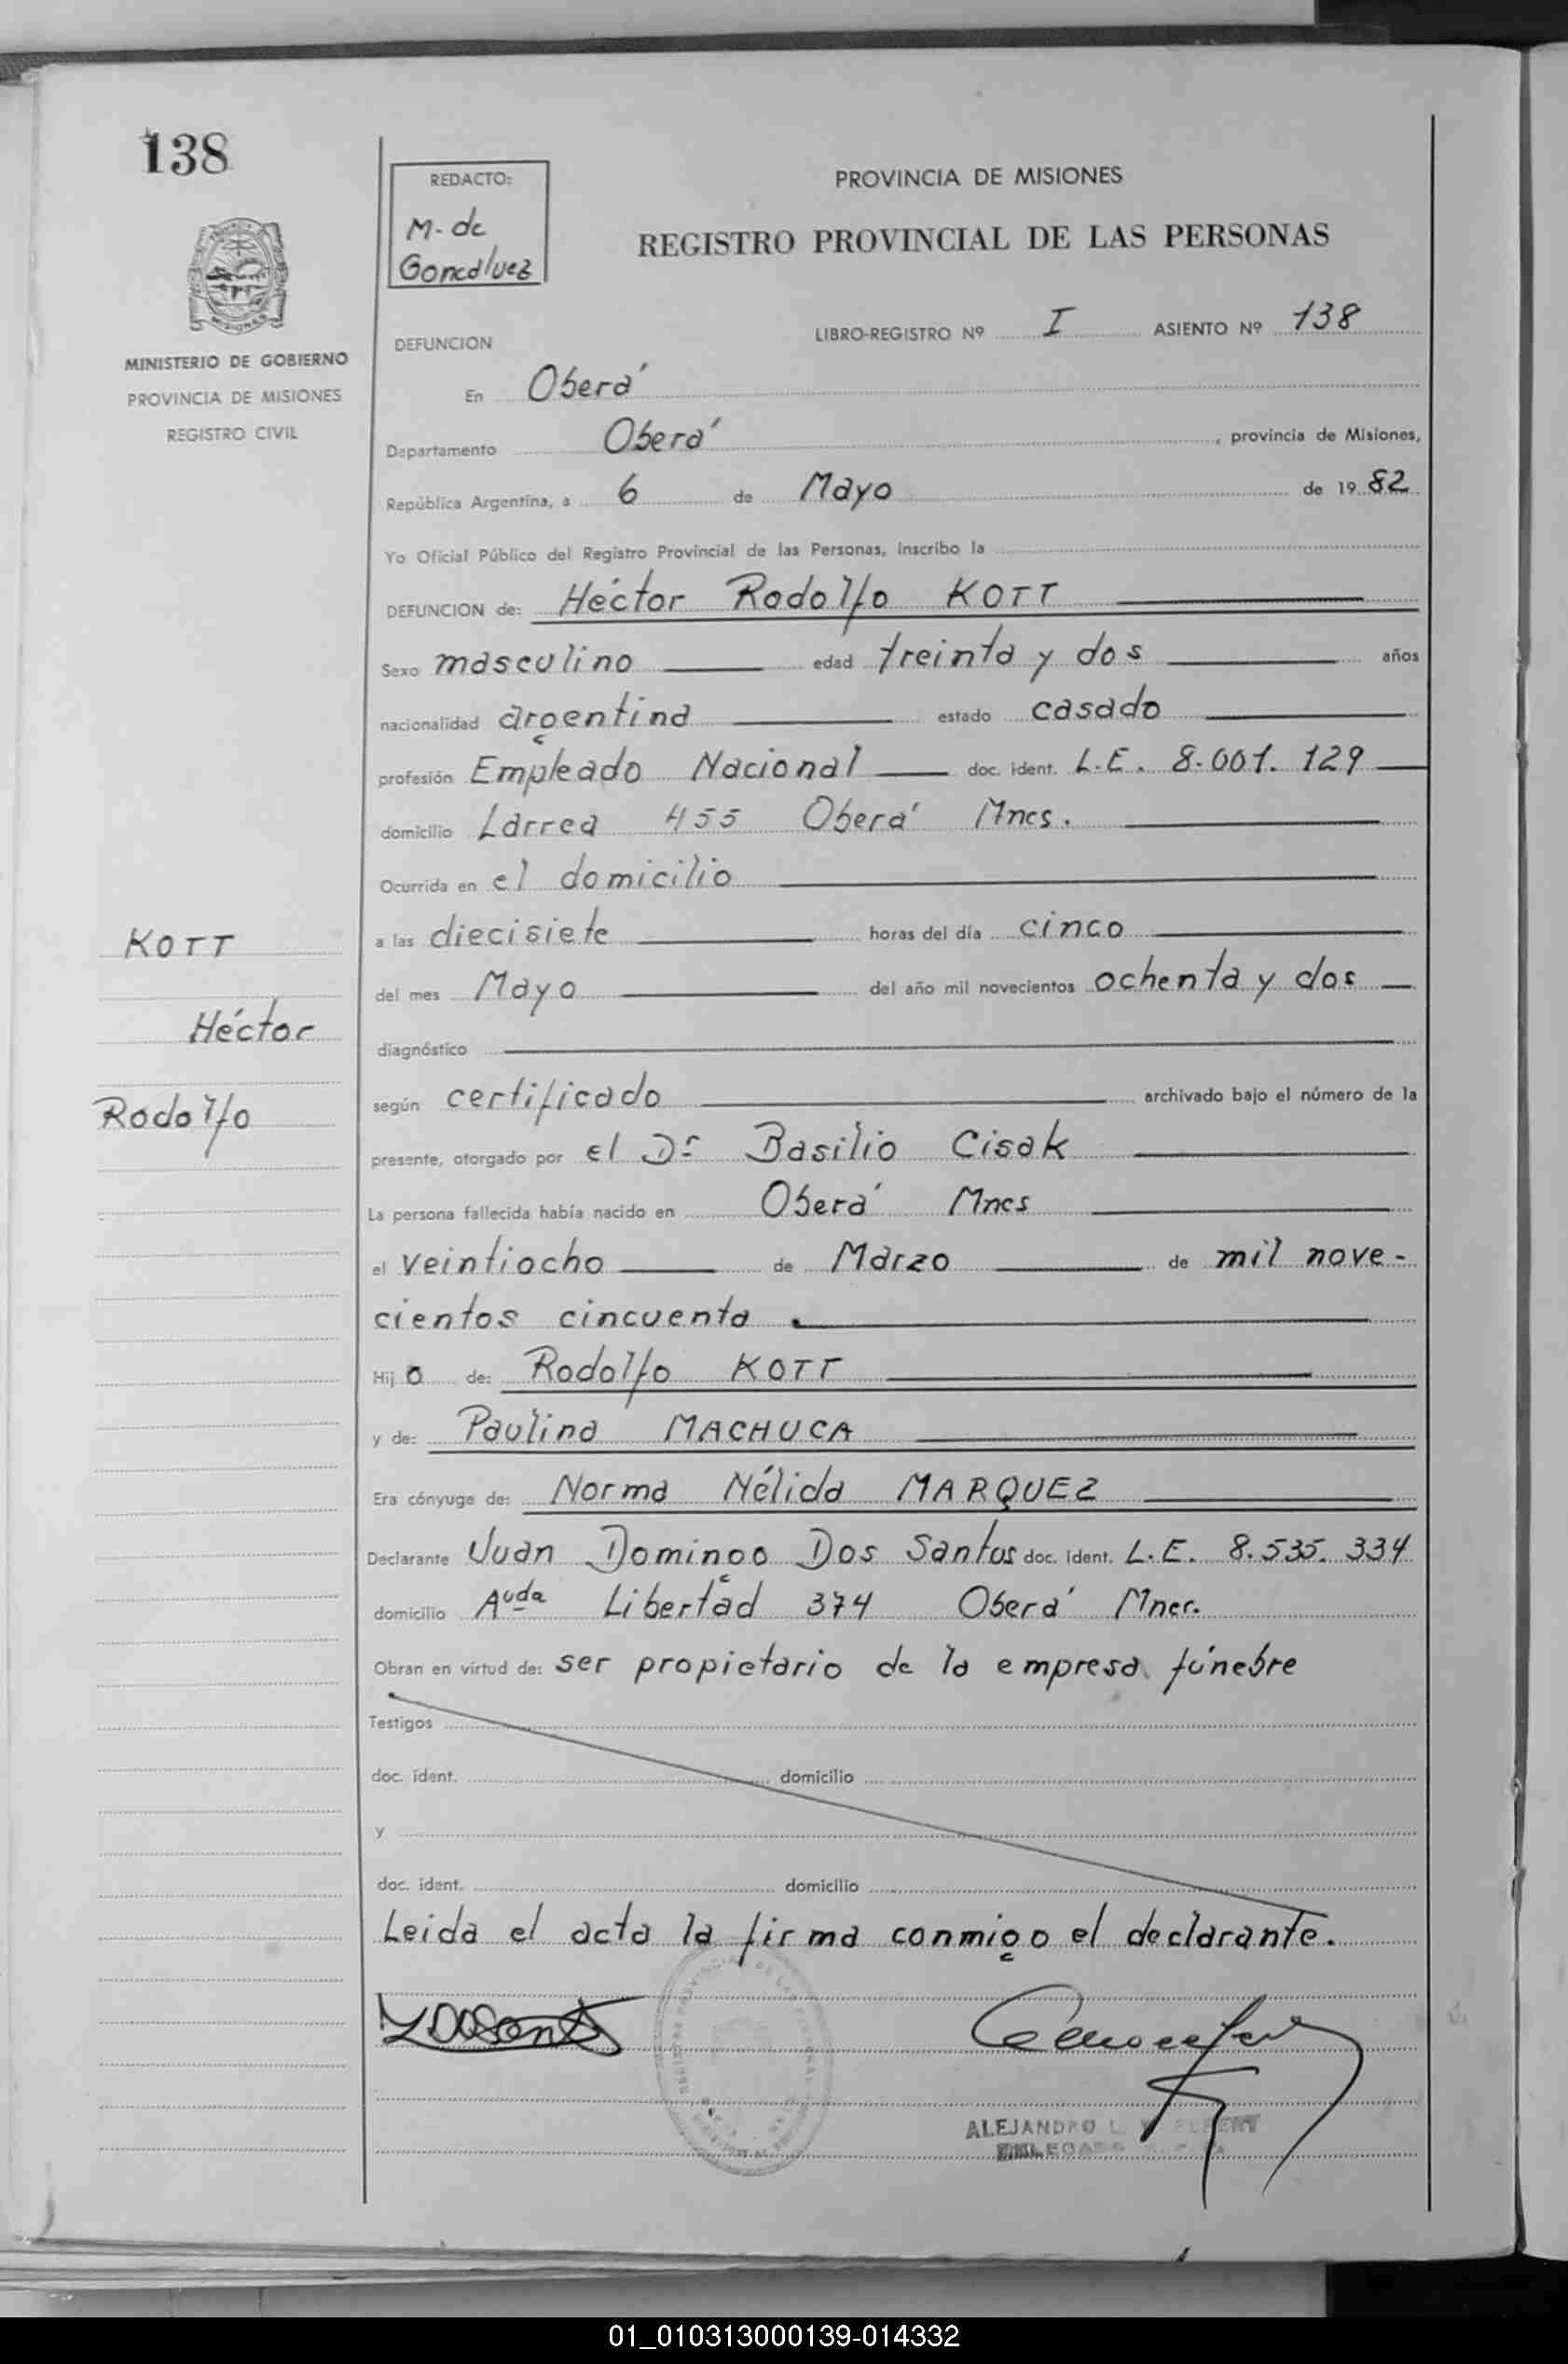 138
REDACTO:
M. de
Goncalvez
PROVINCIA DE MISIONES
REGISTRO PROVINCIAL DE LAS PERSONAS
MISIONES
MINISTERIO DE GOBIERNO
PROVINCIA DE MISIONES
REGISTRO CIVIL
LIBRO-REGISTRO Nº I ASIENTO Nº 138
DEFUNCION
En Oberá
Departamento Oberá, provincia de Misiones,
República Argentina, a 6 de Mayo de 1982
Yo Oficial Público del Registro Provincial de las Personas, inscribo la
DEFUNCION de: Héctor Rodolfo KOTT
Sexo masculino edad treinta y dos años
nacionalidad argentina estado casado
profesión Empleado Nacional doc. ident. L.E. 8.001.129
domicilio Larrea 455 Oberá Mnes.
Ocurrida en el domicilio
a las diecisiete horas del día cinco
del mes Mayo del año mil novecientos ochenta y dos
diagnóstico
según certificado archivado bajo el número de la
presente, otorgado por el Dr Basilio Cisak
La persona fallecida había nacido en Oberá Mnes
el veintiocho de Marzo de mil nove-
cientos cincuenta.
Hijo de: Rodolfo KOTT
y de: Paulina MACHUCA
Era cónyuge de: Norma Nélida MARQUEZ
Declarante Juan Domingo Dos Santos doc. ident. L.E. 8.535.334
domicilio Avda Libertad 374 Oberá Mnes.
Obran en virtud de: ser propietario de la empresa fúnebre
Testigos
doc. ident. domicilio
y
doc. ident. domicilio
Leida el acta la firma conmigo el declarante.
KOTT
Héctor
Rodolfo
ALEJANDRO L.
01_010313000139-014332